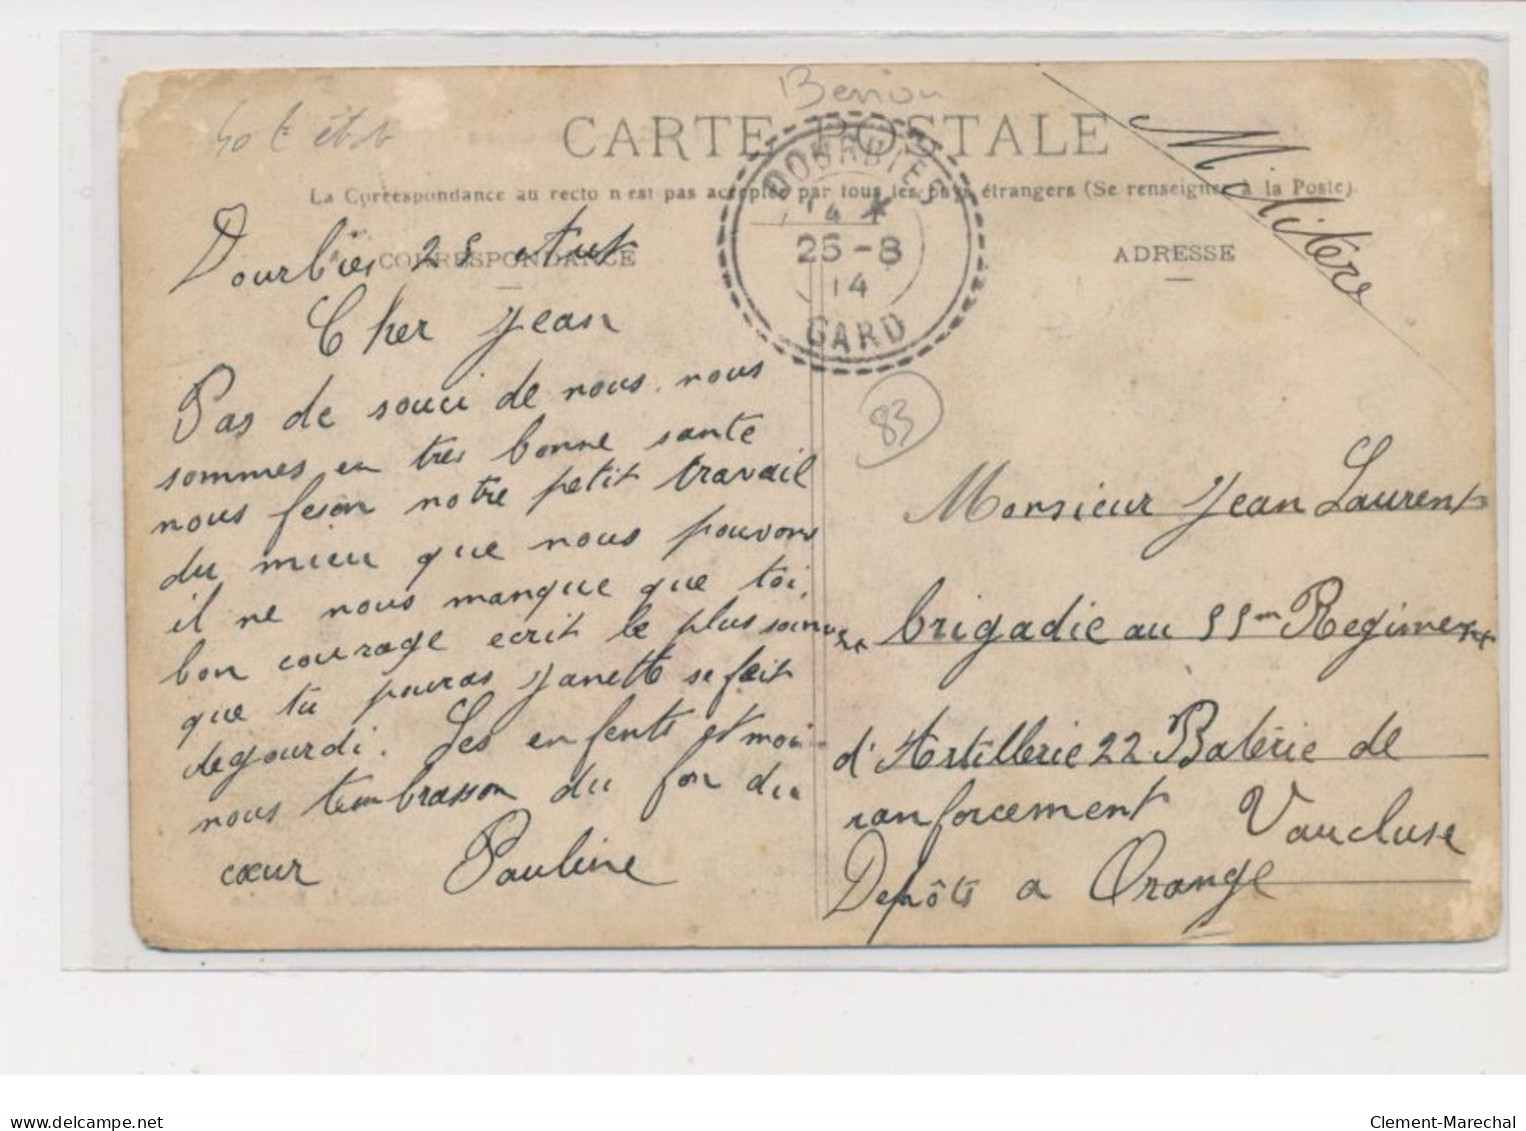 Benou
CARTE POSTALE
La Correspondance au recto n'est pas acceptée par tous les pays étrangers (Se renseigner à la Poste).
CORRESPONDANCE
ADRESSE
DOURBIES
14 *
25-8
14
GARD
83
Militere
Dourbies 25
Cher Jean
Pas de souci de nous. nous
sommes en tres bonne sante
nous feson notre petit travail
du mieu que nous pouvons
il ne nous manque que toi,
bon courage ecrit le plus souvent
que tu pouras Janette se fait
degourdi. Les enfents et moi
nous tembrasson du fon du
cœur Pauline
Monsieur Jean Laurent
brigadie au 55me Regiment
d'Artillerie 22 Baterie de
ranforcement Vaucluse
Depôts a Orange
Clement-Marechal